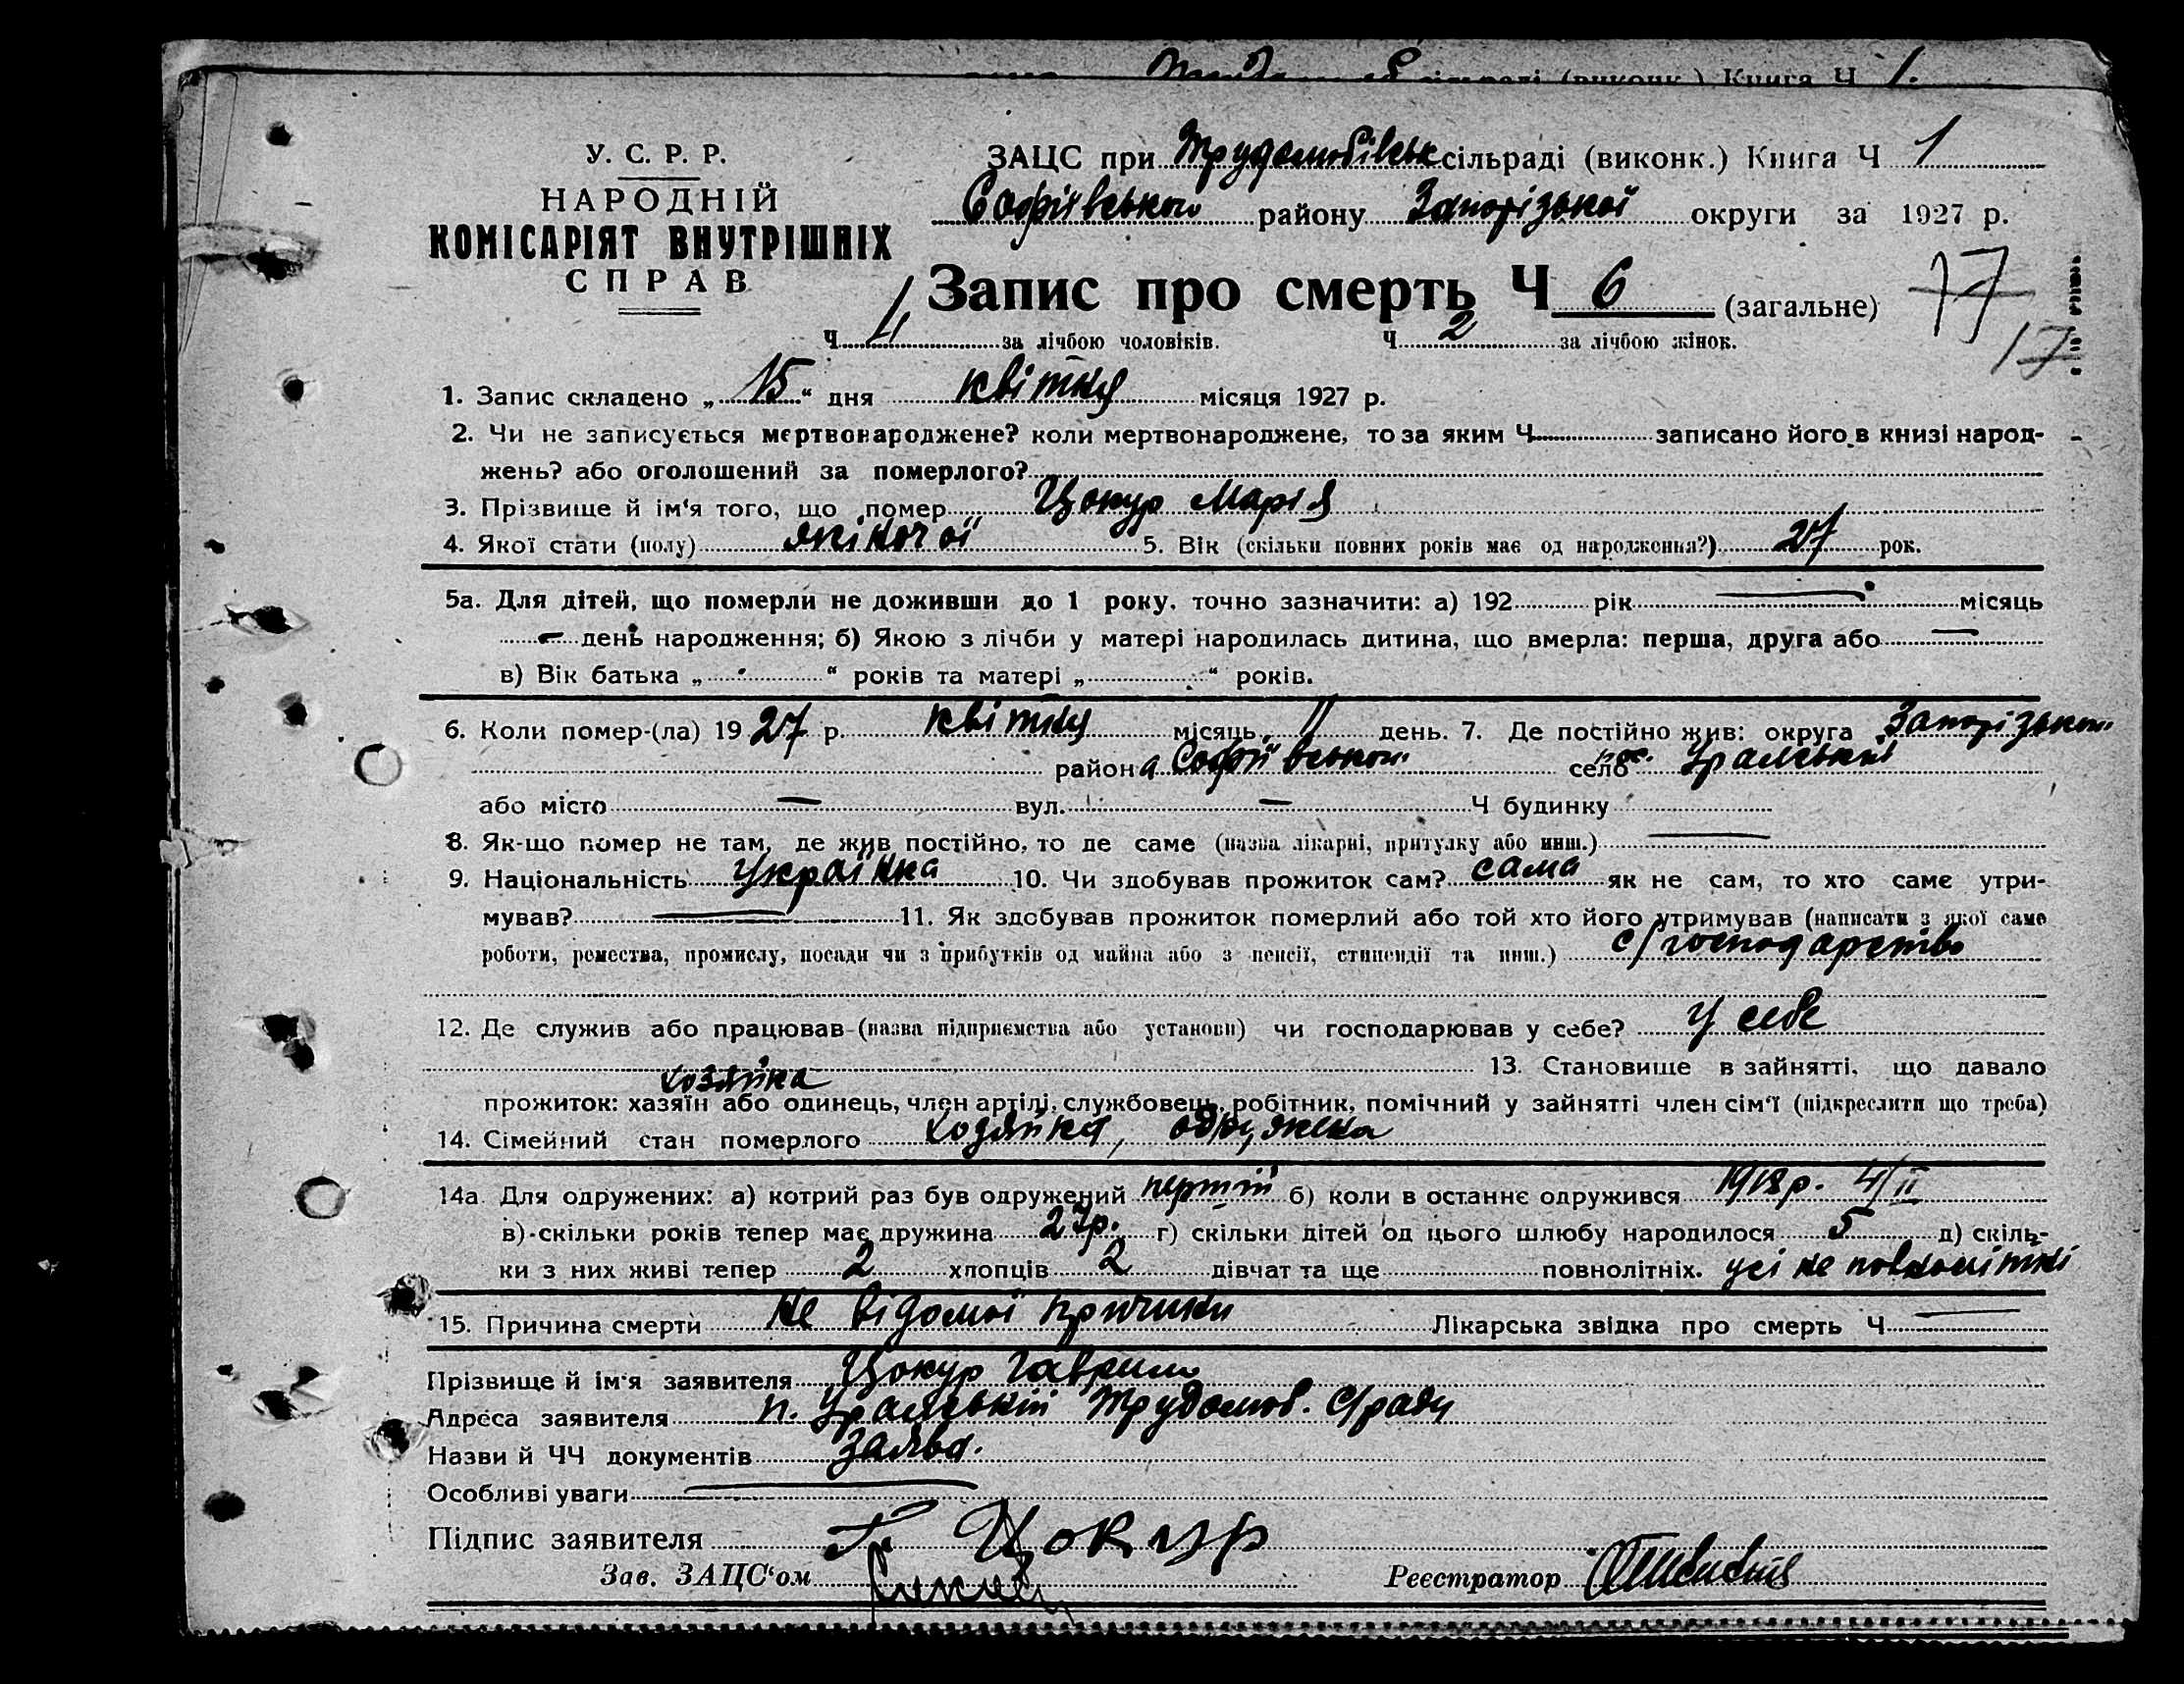 сільраді (виконк.) Книга Ч 1.
У. С. Р. Р.
НАРОДНІЙ
КОМІСАРІЯТ ВНУТРІШНІХ
СПРАВ
ЗАЦС при Трудолюбівськ сільраді (виконк.) Книга Ч 1
Софіївського району Запорізької округи за 1927 р.
Запис про смерть Ч 6 (загальне)
77
17
Ч 4 за лічбою чоловіків. Ч 2 за лічбою жінок.
1. Запис складено „15“ дня квітня місяця 1927 р.
2. Чи не записується мертвонароджене? коли мертвонароджене, то за яким Ч записано його в книзі народ-
жень? або оголошений за померлого?
3. Прізвище й ім'я того, що помер Цокур Марія
4. Якої стати (полу) жіночої 5. Вік (скільки повних років має од народження?) 27 рок.
5а. Для дітей, що померли не доживши до 1 року, точно зазначити: а) 192 рік — місяць
— день народження; б) Якою з лічби у матері народилась дитина, що вмерла: перша, друга або —
в) Вік батька „ “ років та матері „ “ років.
6. Коли помер-(ла) 19 27 р. квітня місяць 11 день. 7. Де постійно жив: округа Запорізької
района Софіївського село пос. Уральский
або місто — вул. — Ч будинку
8. Як-що помер не там, де жив постійно, то де саме (назва лікарні, притулку або инш.) —
9. Національність українка 10. Чи здобував прожиток сам? сама як не сам, то хто саме утри-
мував? — 11. Як здобував прожиток померлий або той хто його утримував (написати з якої саме
роботи, ремества, промислу, посади чи з прибутків од майна або з пенсії, стипендії та инш.) с/господарство
12. Де служив або працював (назва підприємства або установи) чи господарював у себе? у себе
13. Становище в зайнятті, що давало
хозяйка
прожиток: хазяїн або одинець, член артілі, службовець, робітник, помічний у зайнятті член сім'ї (підкреслити що треба)
14. Сімейний стан померлого хозяйка, одружена
14а. Для одружених: а) котрий раз був одружений перший б) коли в останнє одружився 1918 р. 4/II
в) скільки років тепер має дружина 27р. г) скільки дітей од цього шлюбу народилося 5 д) скіль-
ки з них живі тепер 2 хлопців 2 дівчат та ще повнолітніх. усі не повнолітні
15. Причина смерти не відомої причини Лікарська звідка про смерть Ч —
Прізвище й ім'я заявителя Цокур Гаврило
Адреса заявителя п. Уральский Трудолюб. С/ради
Назви й ЧЧ документів заява.
Особливі уваги —
Підпис заявителя Г. Цокур
Зав. ЗАЦС'ом Реєстратор